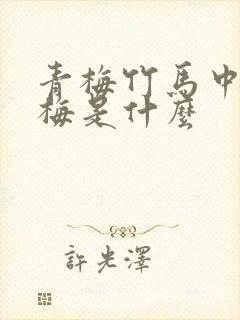 青梅竹馬中
梅是什麼
許光澤